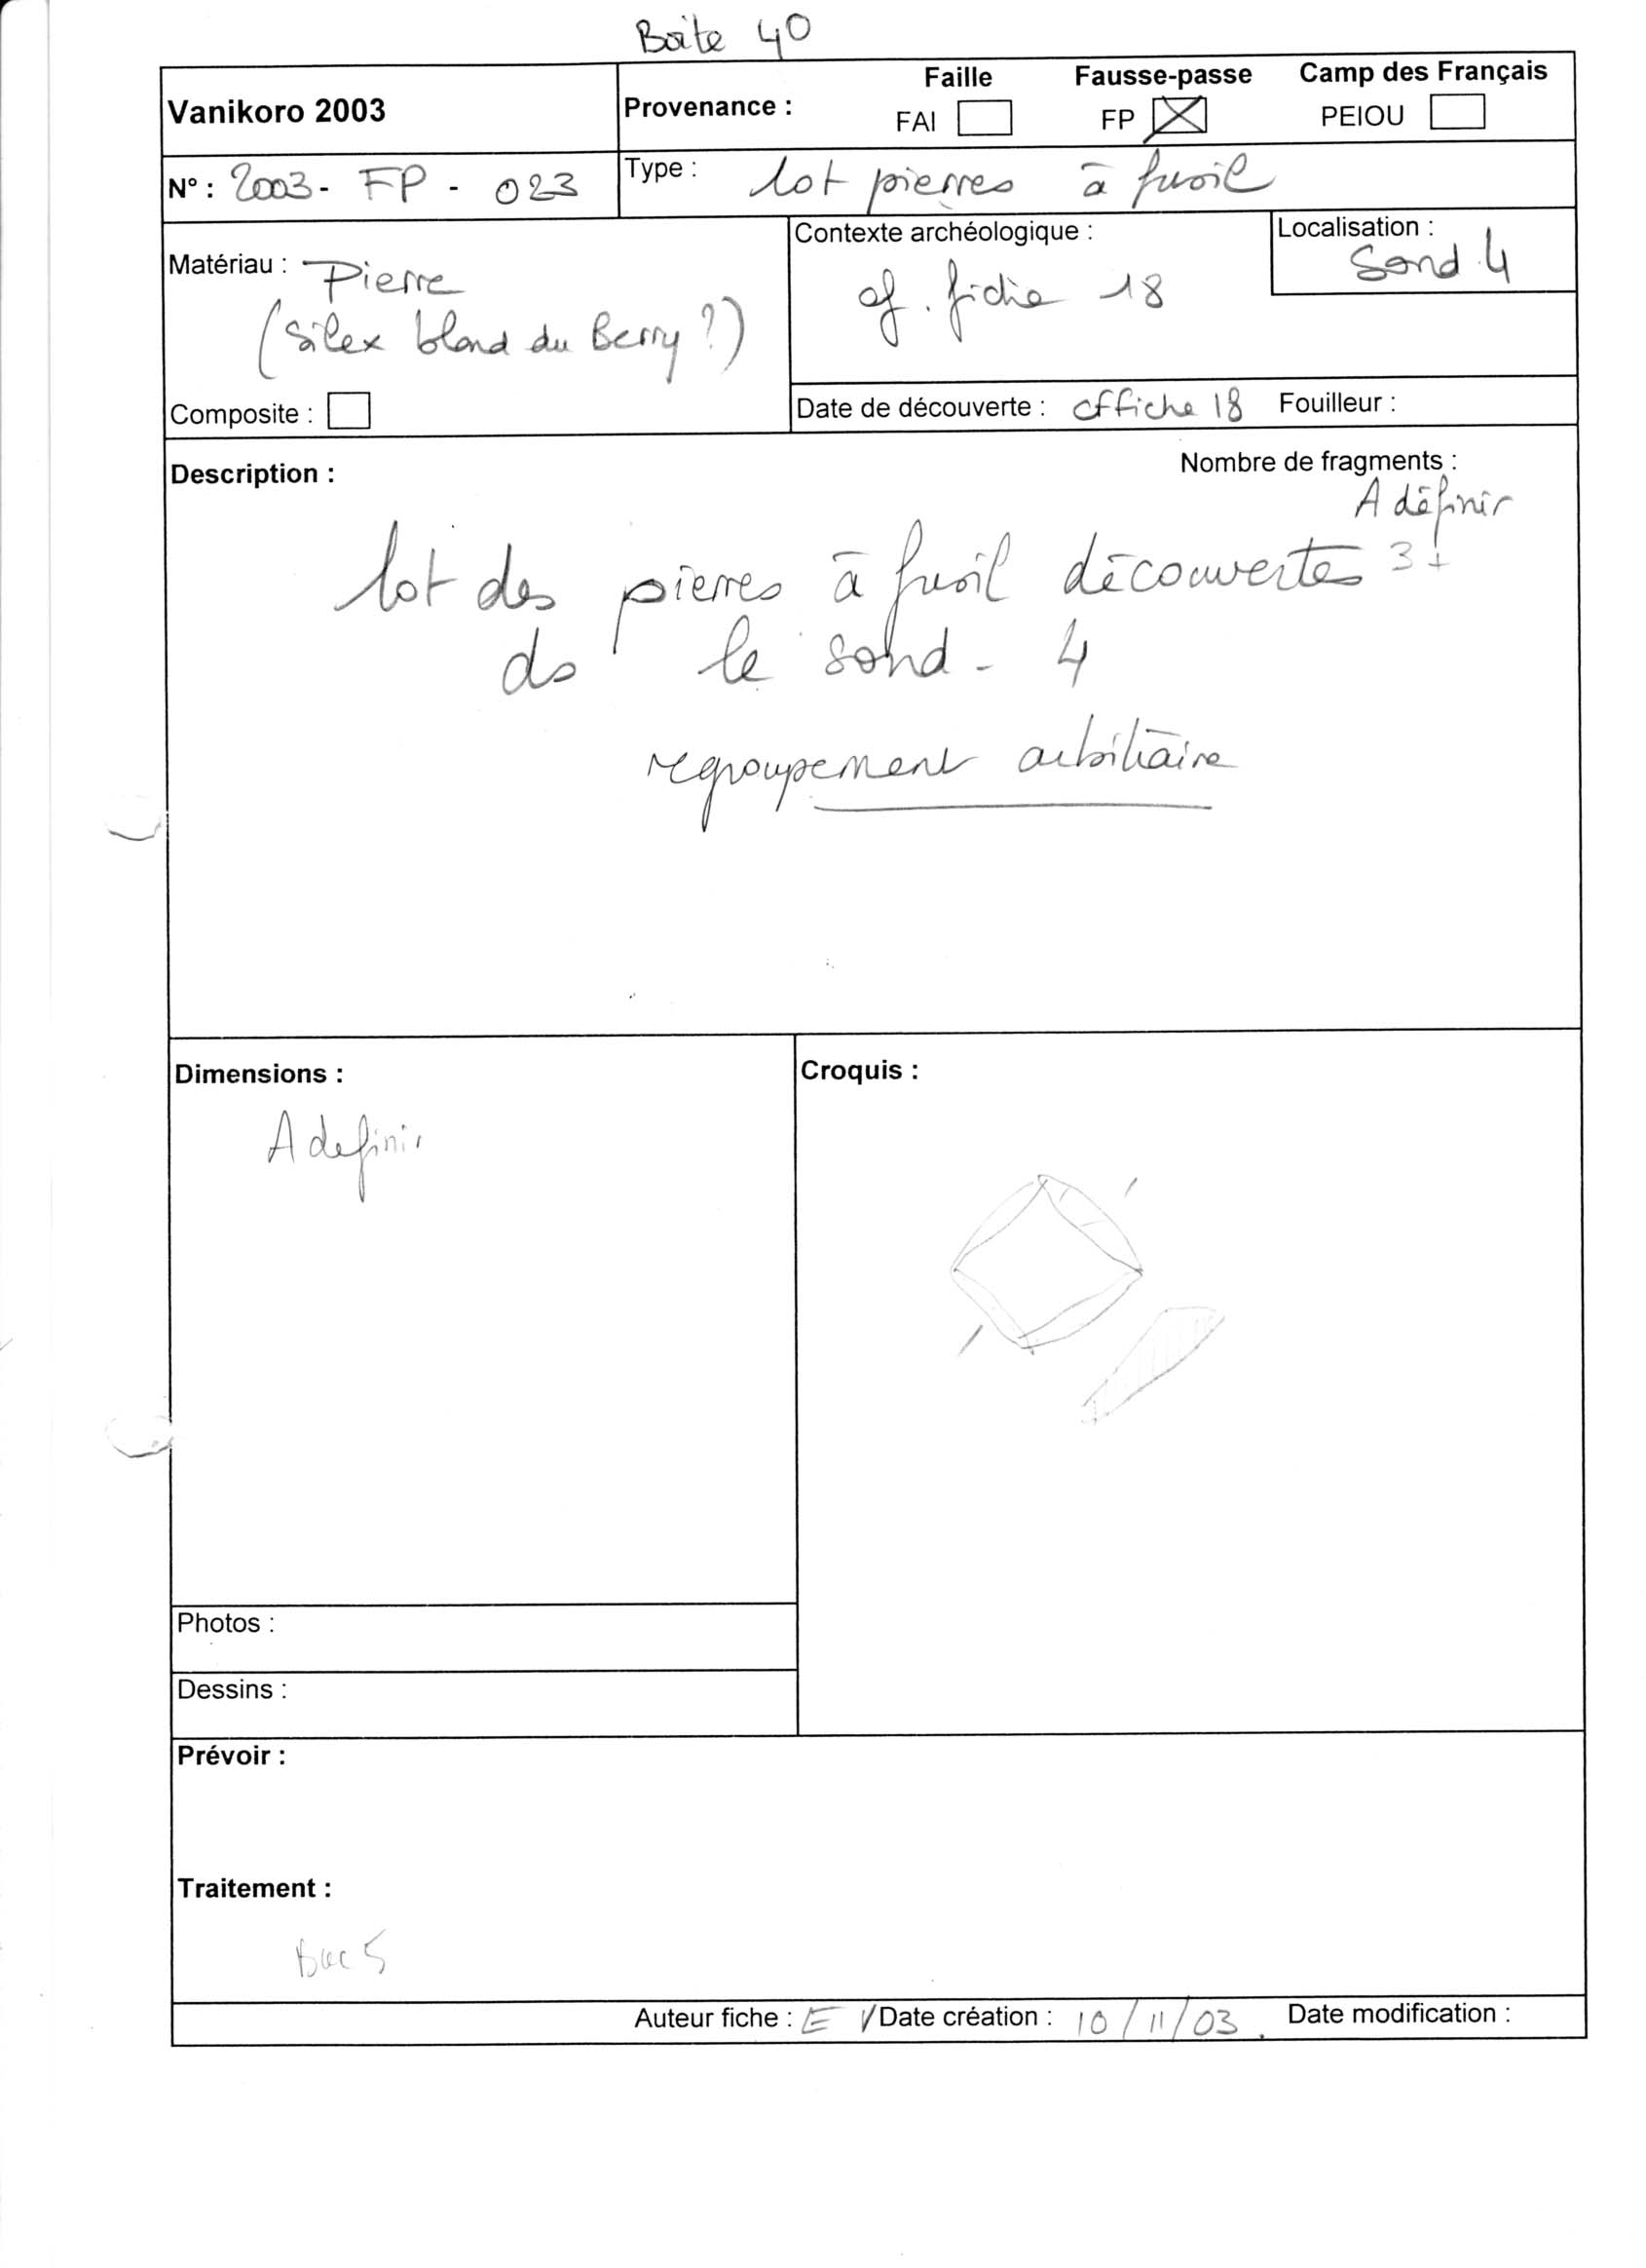 Boîte 40
Vanikoro 2003
Provenance :
Faille
Fausse-passe
Camp des Français
FAI
FP
PEIOU
N° : 2003 - FP - 023
Type : lot pierres à fusil
Matériau : Pierre
(Silex blond du Berry ?)
Composite :
Contexte archéologique :
cf. fiche 18
Localisation :
Sond 4
Date de découverte : cf fiche 18
Fouilleur :
Description :
Nombre de fragments :
A définir
lot des pierres à fusil découvertes
ds le sond - 4
regroupement arbitraire
Dimensions :
A definir
Croquis :
Photos :
Dessins :
Prévoir :
Traitement :
Bac 5
Auteur fiche : EV Date création : 10/11/03. Date modification :